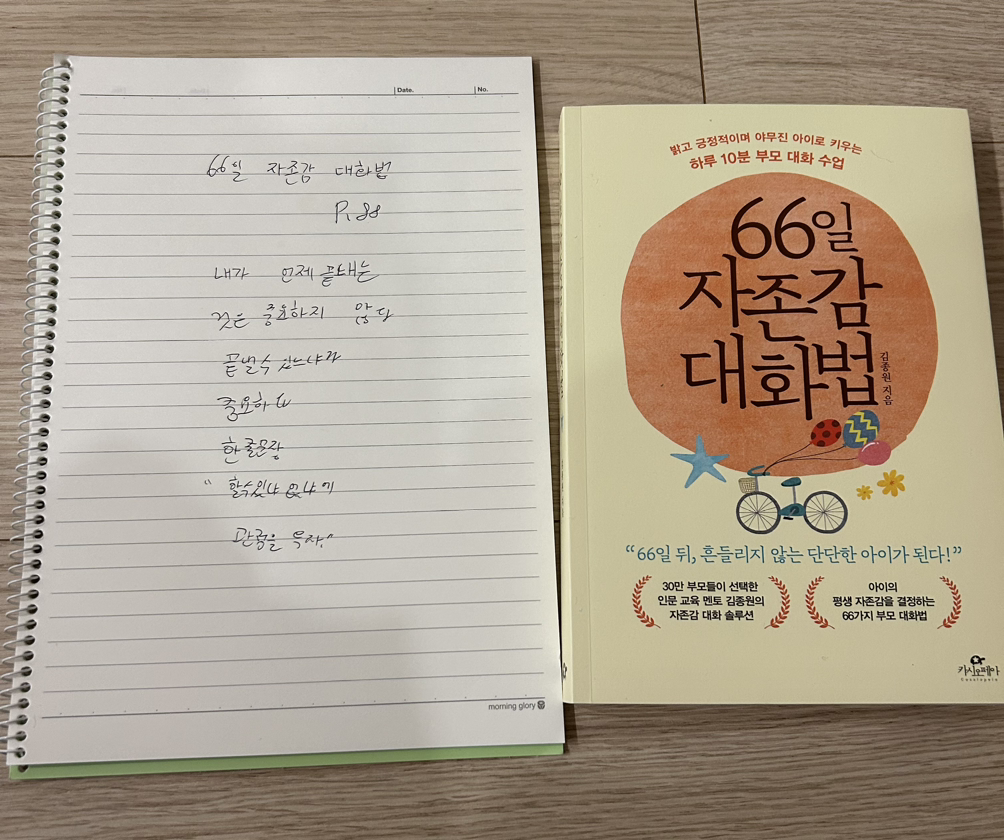 Date.
No.
66일 자존감 대화법
P. 88
내가 언제 끝내는
것은 중요하지 않다
끝낼 수 있느냐가
중요하다
한 줄 문장
"할 수 있냐 없냐에
관점을 두자."
morning glory
밝고 긍정적이며 야무진 아이로 키우는
하루 10분 부모 대화 수업
66일
자존감
대화법
김종원 지음
"66일 뒤, 흔들리지 않는 단단한 아이가 된다!"
30만 부모들이 선택한
인문 교육 멘토 김종원의
자존감 대화 솔루션
아이의
평생 자존감을 결정하는
66가지 부모 대화법
카시오페아
Cassiopeia